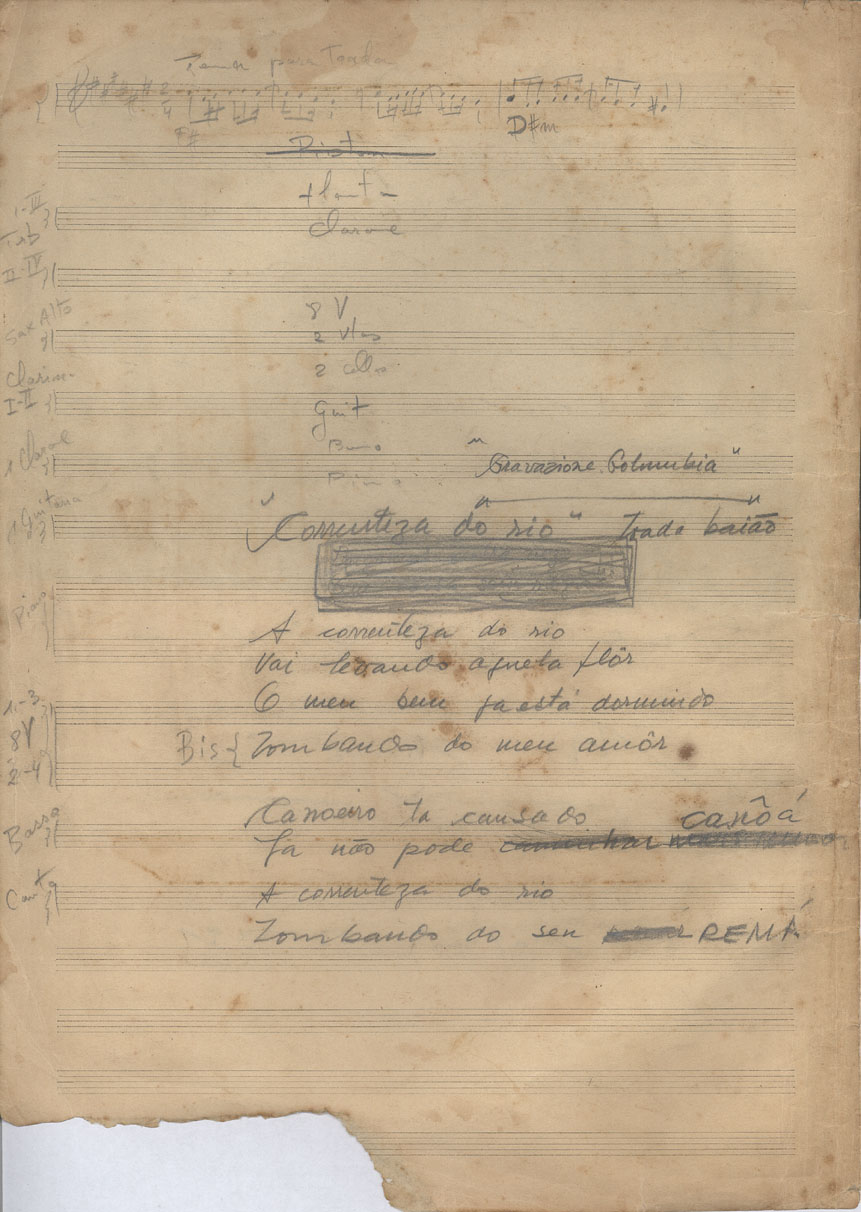 Tema para Toada
F#
D#m
Piston
flauta
Clarone
8 V
2 Vlas
2 cello
Guit
Piano
I-III
Trb
II-IV
Sax Alto
Clarim.
I-II
1 Clarone
1 Guitarra
Piano
1-3
8V
2-4
Basso
Canto
"Gravazione Columbia"
"Correnteza do rio" Toada baião
A correnteza do rio
Vai levando aquela flôr
O meu bem ja está dormindo
Bis { Zombando do meu amôr
Canoeiro ta cansado
Ja não pode caminhar canôá
A correnteza do rio
Zombando do seu REMÁ